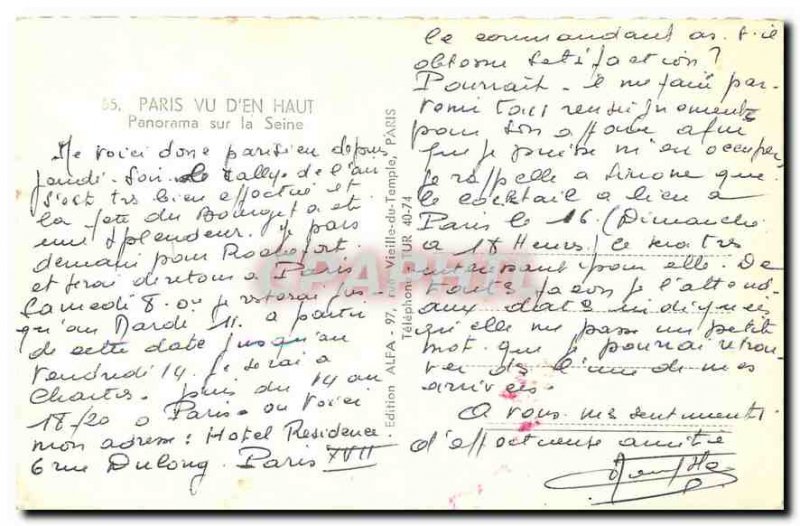 55. PARIS VU D'EN HAUT
Panorama sur la Seine
Me voici donc parisien depuis
jeudi soir le rallye de l'air
s'est très bien effectué et
la fête du Bourget a été
une splendeur. Je pars
demain pour Rochefort
et serai de retour à Paris
Samedi 8. où je resterai jus
qu'au Mardi 11. a partir
de cette date jusqu'au
Vendredi 14 je serai à
Chartres. puis du 14 au
18/20 à Paris. ou voici
mon adresse: Hotel Residence
6 rue Dulong. Paris XVII
Edition ALFA - 97, rue Vieille-du-Temple, PARIS
Téléphone: 40-74
le commandant as. t-il
obtenu satisfaction?
Pourrait-il me faire par-
venir tous renseignements
pour son affaire afin
que je puisse m'en occuper
je rappelle a Simone que
le cocktail a lieu a
Paris le 16. (Dimanche
a 18 Heures) ce
interessant pour elle. De
toutes façons je l'attend
aux dates indiquées
qu'elle me passe un petit
mot que je pourrai retrou-
ver dès l'une de mes
arrivées.
A vous mes sentiments
d'affectueuse amitié